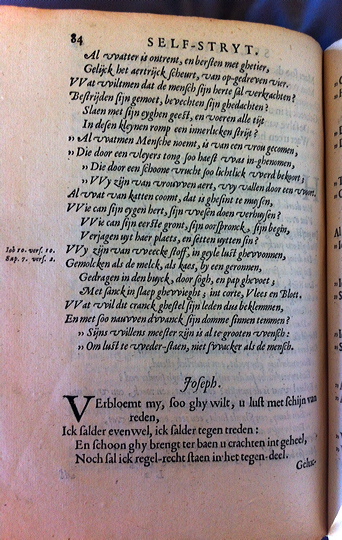 84 SELF-STRYT.
Al vvatter is ontrent, en bersten met ghetier,
Gelijck het aertrijck scheurt, van op-gedreven vier.
VVat vviltmen dat de mensch sijn herte sal verkrachten?
Bestrijden sijn gemoet, bevechten sijn ghedachten?
Slaen met sijn eyghen geest, en voeren alle tijt
In desen kleynen romp een innerlicken strijt?
„ Al vvatmen Mensche noemt, is van een vrou gecomen,
„ Die door een vleyers tong soo haest vvas in-ghenomen,
„ Die door een schoone vrucht soo lichtlick vverd bekoort;
„ VVy zijn van vrouvven aert, vvy vallen door een vvoort.
Al vvat van katten coomt, dat is ghesint te muysen,
VVie can sijn eygen hert, sijn vvesen doen verhuysen?
VVie can sijn eerste gront, sijn oorspronck, sijn begin,
Verjagen uyt haer plaets, en setten uytten sin?
Iob 10. vers. 10.
Sap. 7. vers. 2.
VVy zijn van vveecke stoff, in geyle lust ghevvonnen,
Gemolcken als de melck, als kaes, by een geronnen,
Gedragen in den buyck, door sogh, en pap ghevoet;
Met sanck in slaep ghevvieght; int corte, Vlees en Bloet.
VVat vvil dit cranck ghestel sijn leden dus beklemmen,
En met soo nauvven dvvanck sijn domme sinnen temmen?
„ Sijns vvillens meester zijn is al te grooten vvensch:
„ Om lust te vveder-staen, niet svvacker als de mensch.
Joseph.
VErbloemt my, soo ghy wilt, u lust met schijn van
reden,
Ick salder evenwel, ick salder tegen treden:
En schoon ghy brengt ter baen u crachten int geheel,
Noch sal ick regel-recht staen in het tegen-deel.
Geluc-